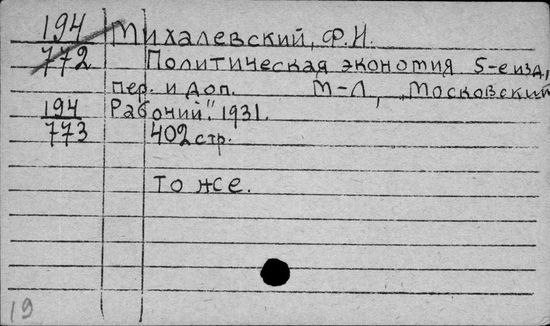 194 Михалевский, Ф.И.
772 Политическая экономия 5-е изд,
пер. и доп. М-Л, „Московский
194 Рабочий." 1931.
773 402 стр.
То же.
19